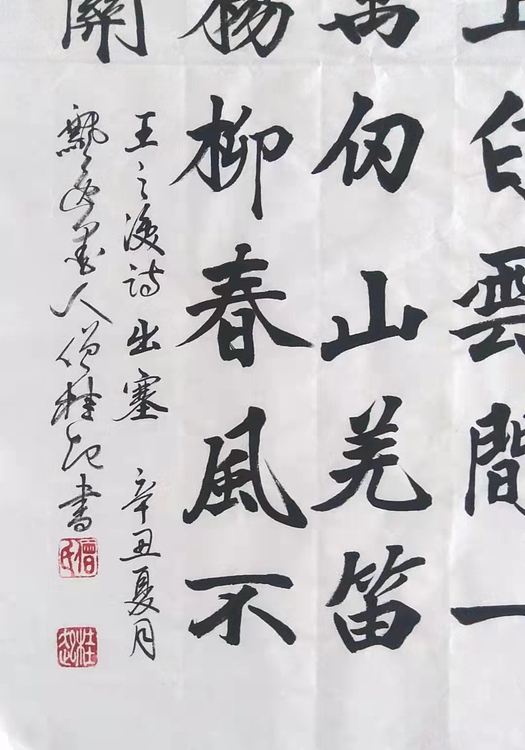 上白雲間一
萬仞山羌笛
楊柳春風不
關
王之渙詩出塞 辛丑夏月
飄逸墨人僧桂起書